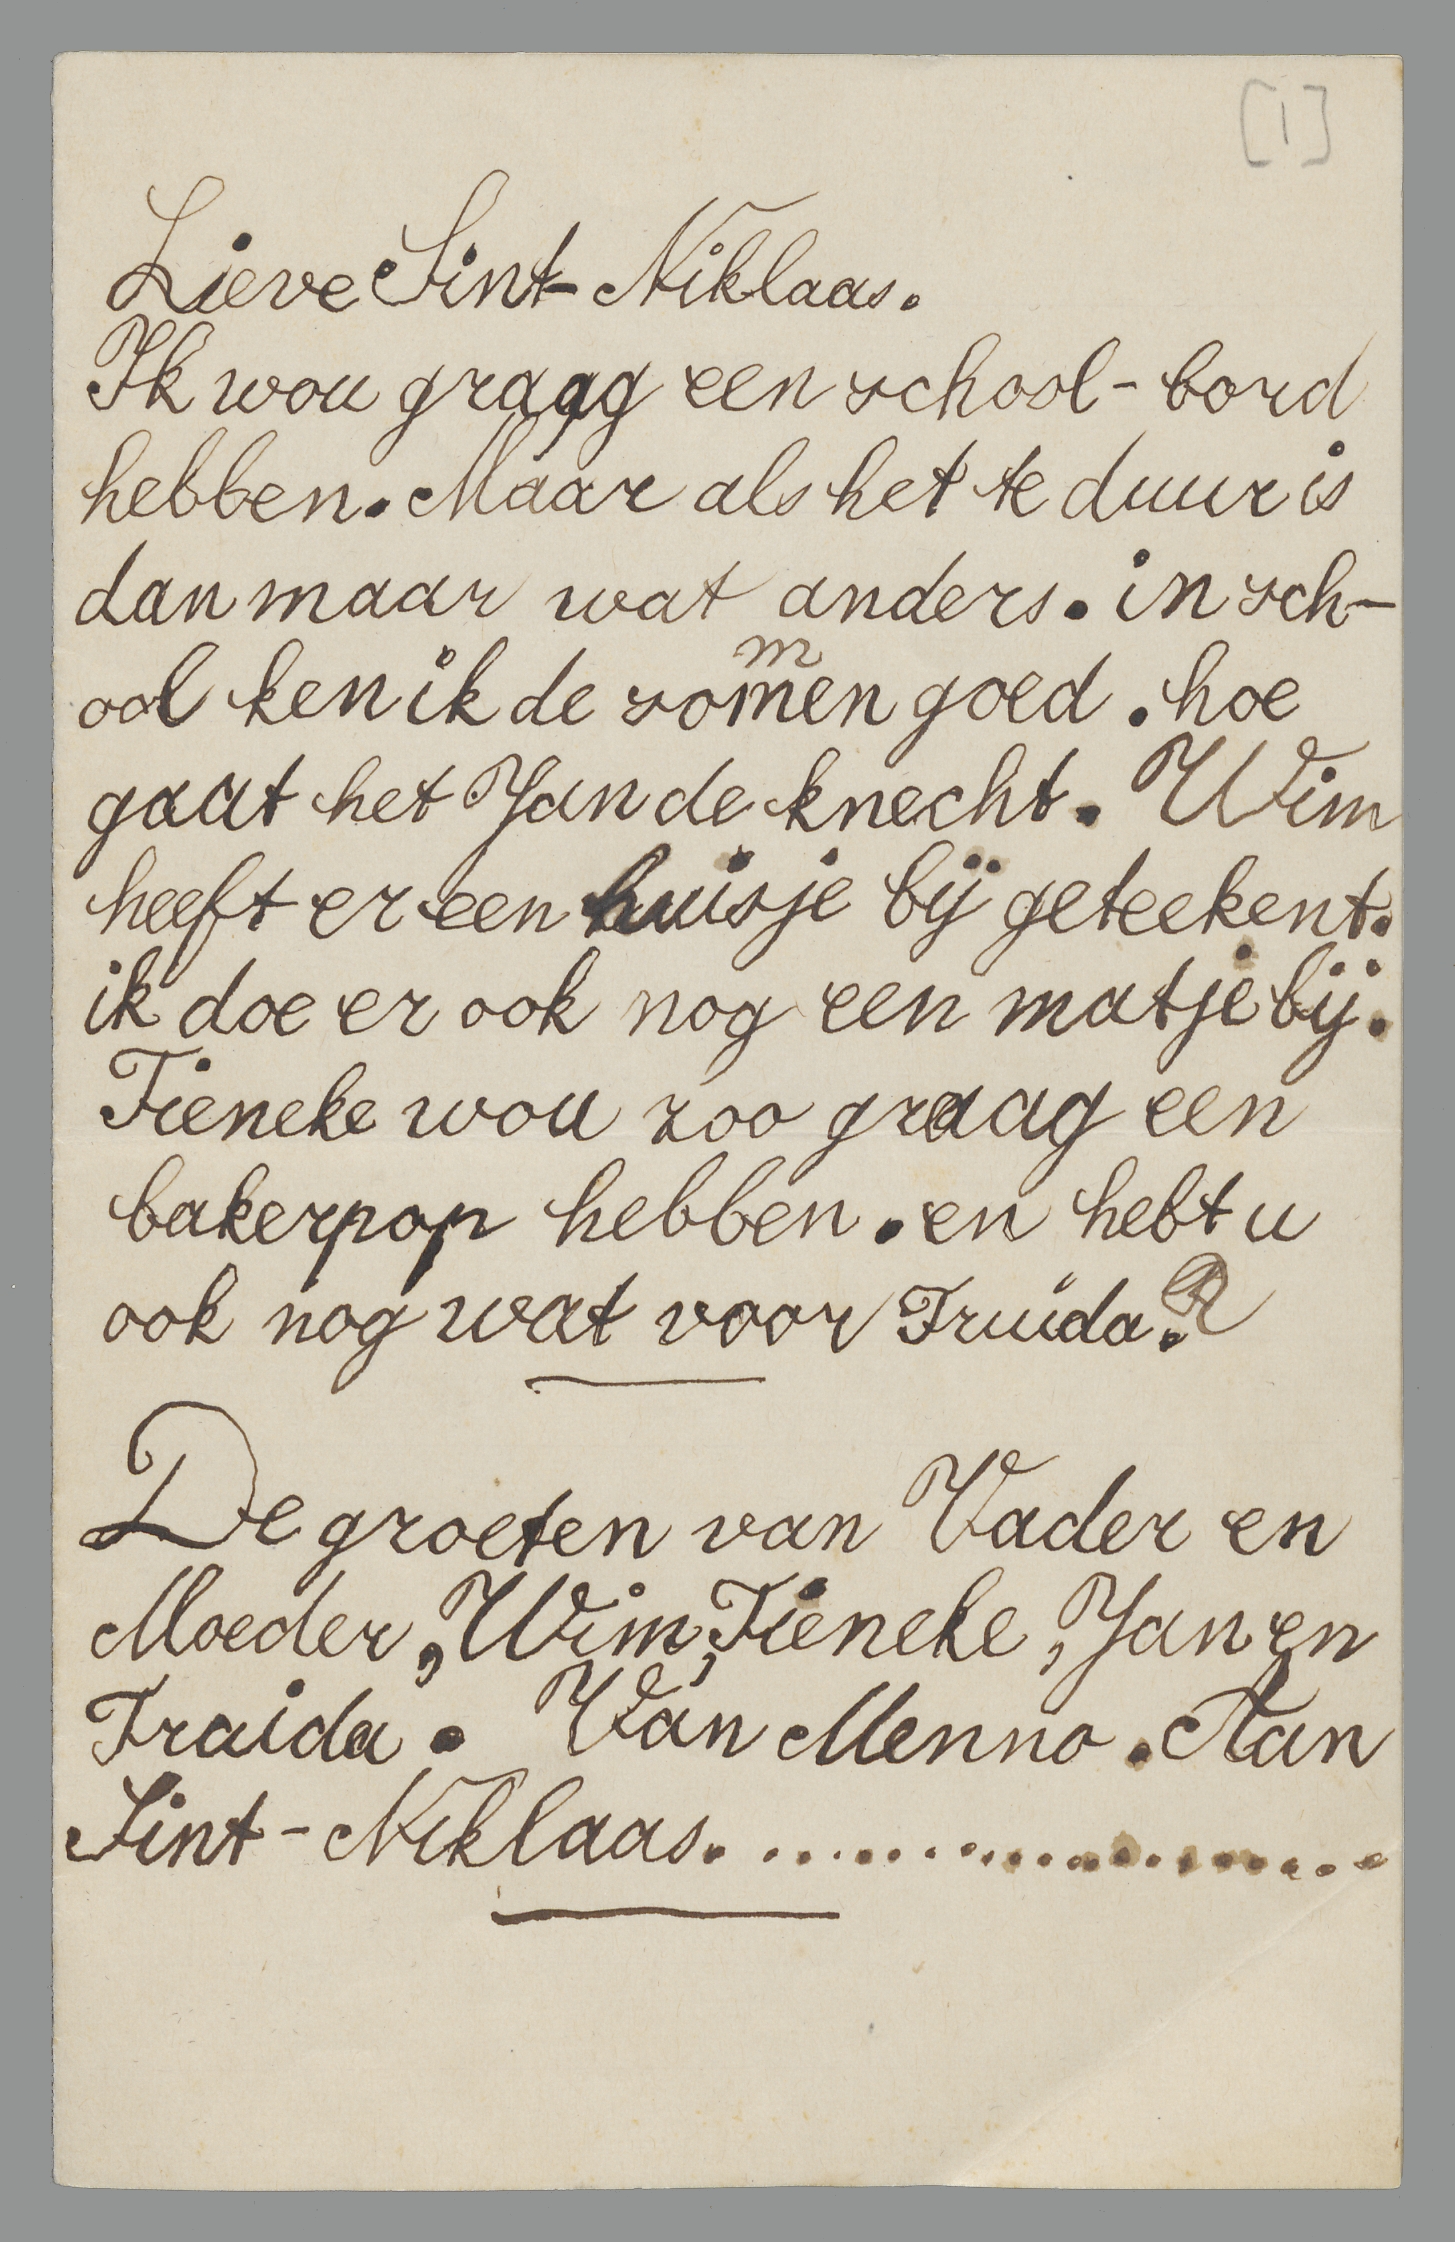 [1]
Lieve Sint-Niklaas.
Ik wou graag een school-bord
hebben. Maar als het te duur is
dan maar wat anders. in sch-
ool ken ik de sommen goed. hoe
gaat het Jan de knecht. Wim
heeft er een huisje bij geteekent.
ik doe er ook nog een matje bij.
Tieneke wou zoo graag een
bakerpop hebben. en hebt u
ook nog wat voor Truida.
De groeten van Vader en
Moeder, Wim, Tieneke, Jan en
Traida. Van Menno. Aan
Sint-Niklaas......................